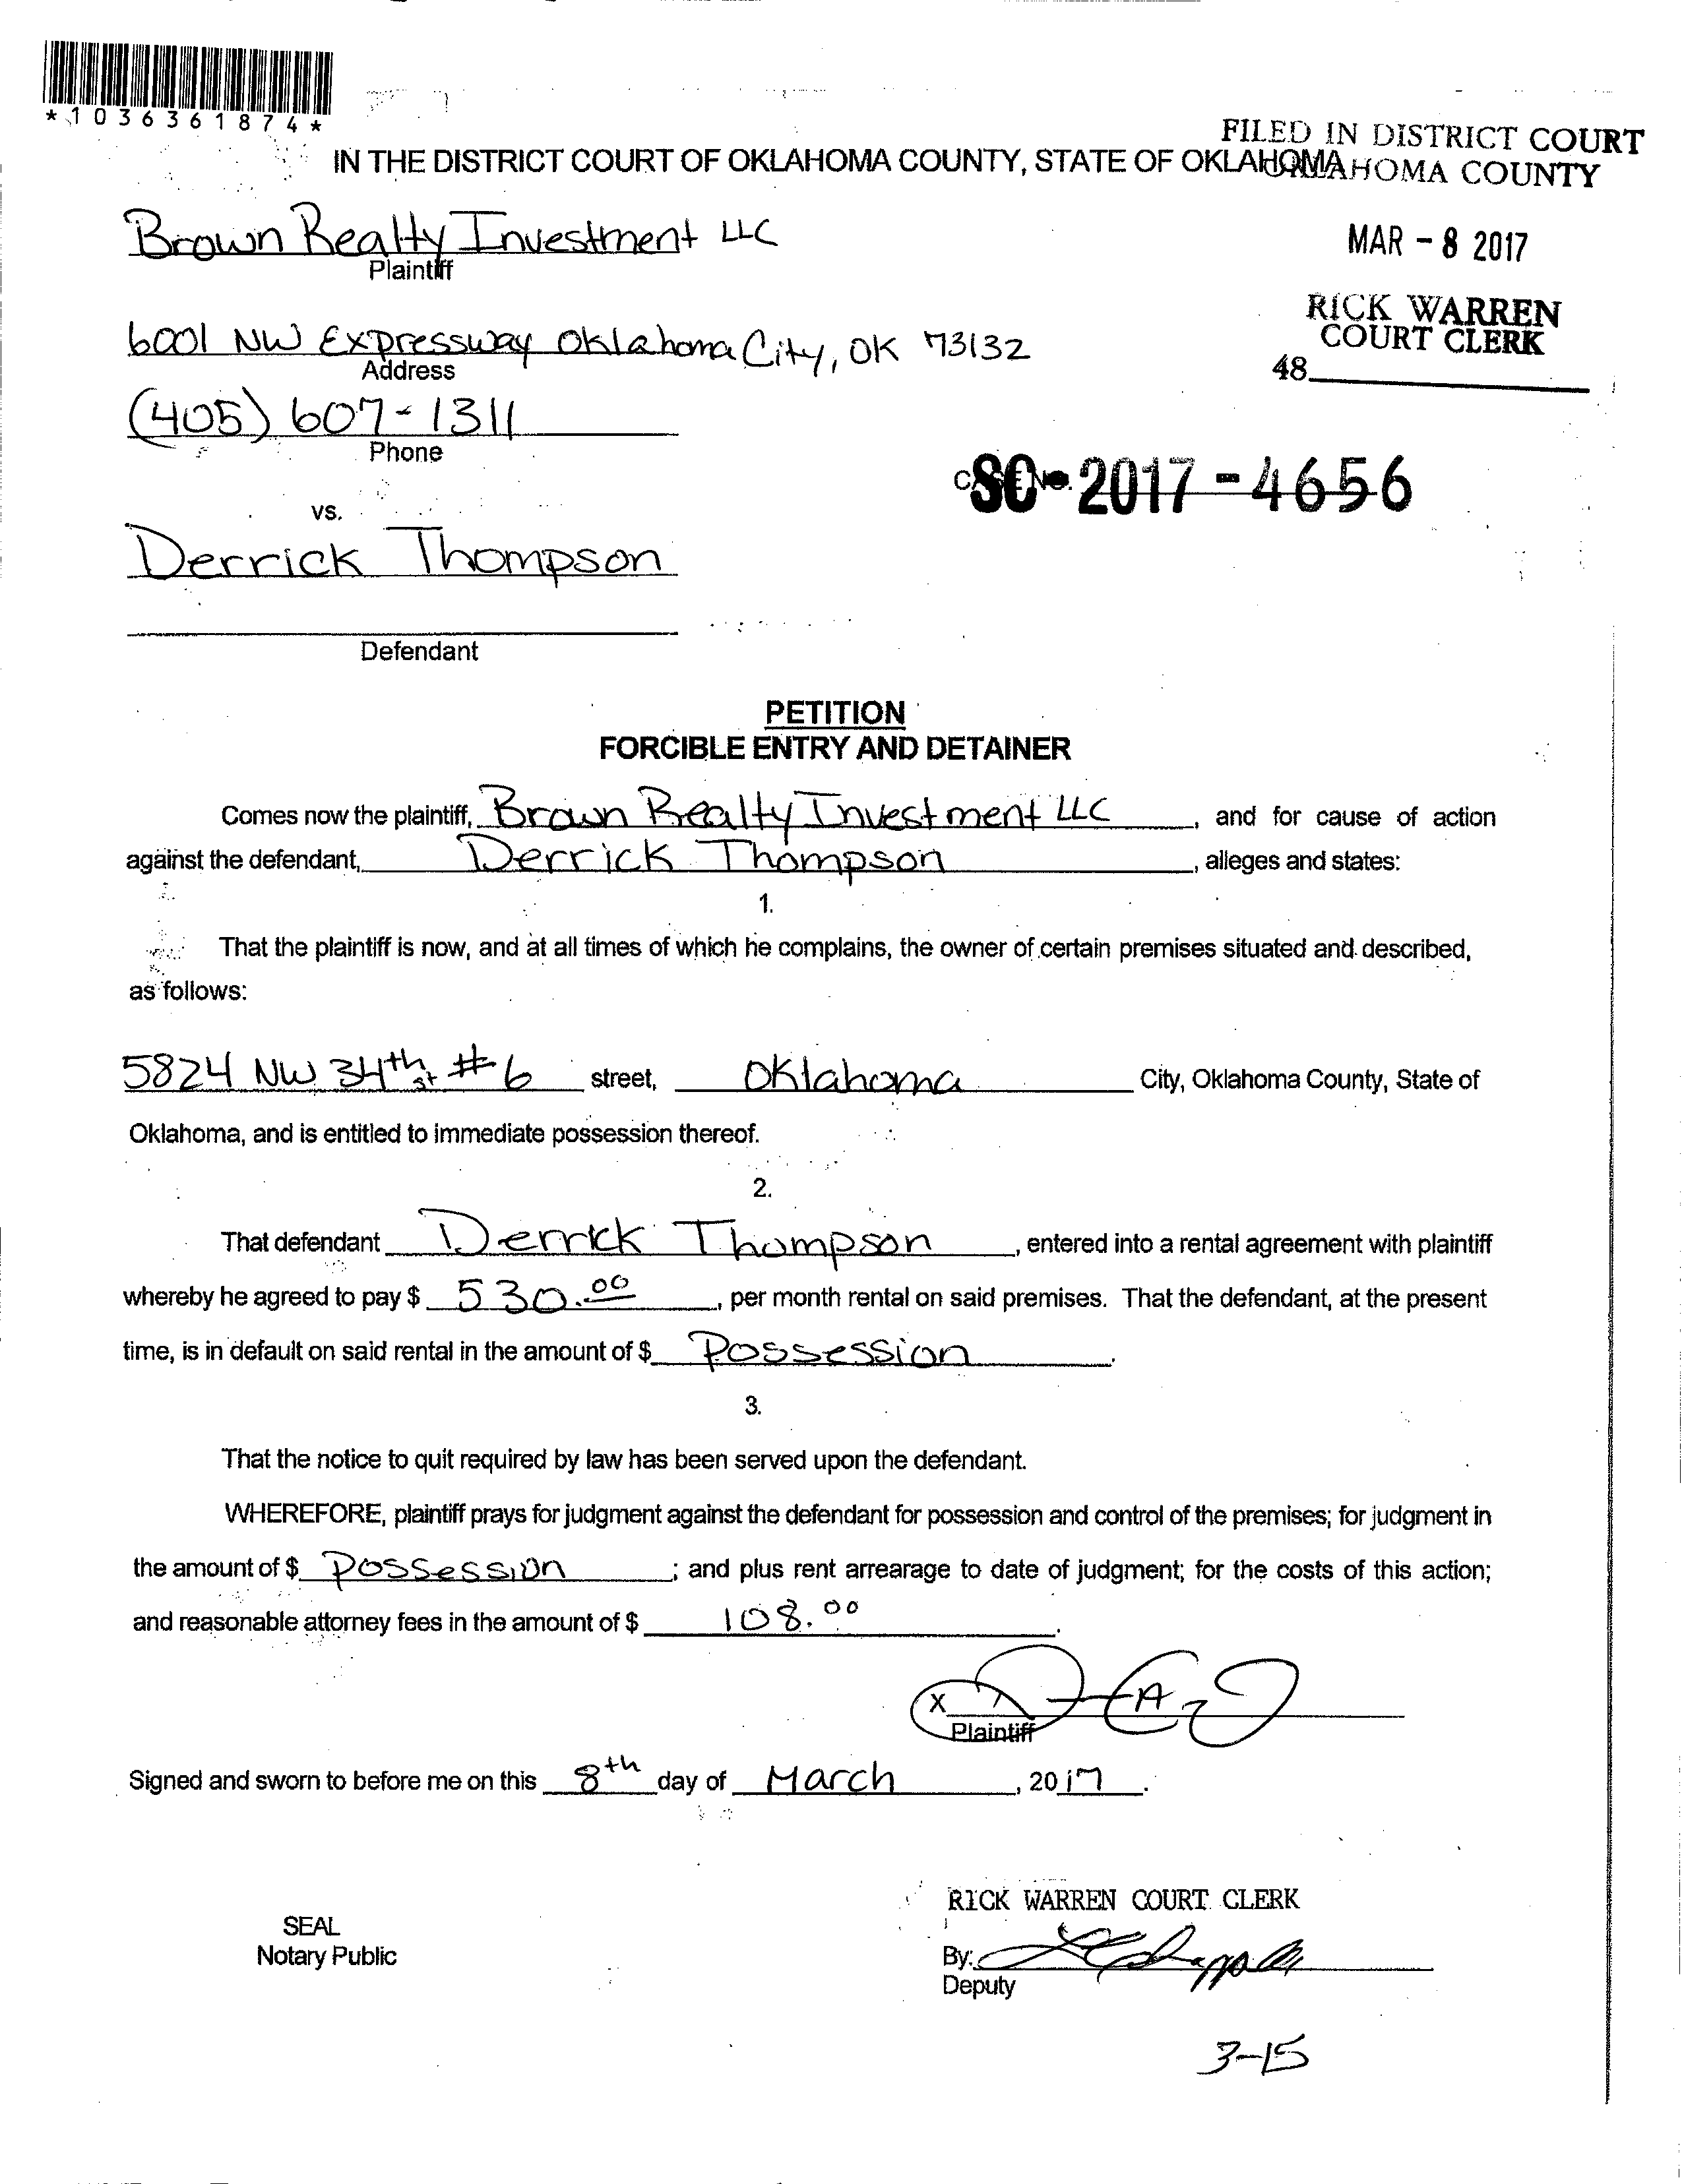 *1036361874*
FILED IN DISTRICT COURT
IN THE DISTRICT COURT OF OKLAHOMA COUNTY, STATE OF OKLAHOMA
OKLAHOMA COUNTY
Brown Realty Investment LLC
Plaintiff
MAR - 8 2017
RICK WARREN
COURT CLERK
6001 NW Expressway Oklahoma City, OK 73132
Address
48
(405) 607-1311
Phone
CASE NO.
SC - 2017 - 4656
vs.
Derrick Thompson
Defendant
PETITION
FORCIBLE ENTRY AND DETAINER
Comes now the plaintiff, Brown Realty Investment LLC, and for cause of action
against the defendant, Derrick Thompson, alleges and states:
1.
That the plaintiff is now, and at all times of which he complains, the owner of certain premises situated and described,
as follows:
5824 NW 34th st #6 street, Oklahoma City, Oklahoma County, State of
Oklahoma, and is entitled to immediate possession thereof.
2.
That defendant Derrick Thompson, entered into a rental agreement with plaintiff
whereby he agreed to pay $ 530.00, per month rental on said premises. That the defendant, at the present
time, is in default on said rental in the amount of $ Possession.
3.
That the notice to quit required by law has been served upon the defendant.
WHEREFORE, plaintiff prays for judgment against the defendant for possession and control of the premises; for judgment in
the amount of $ Possession; and plus rent arrearage to date of judgment; for the costs of this action;
and reasonable attorney fees in the amount of $ 108.00.
X
Plaintiff
Signed and sworn to before me on this 8th day of March, 2017.
RICK WARREN COURT CLERK
SEAL
Notary Public
By:
Deputy
3-15